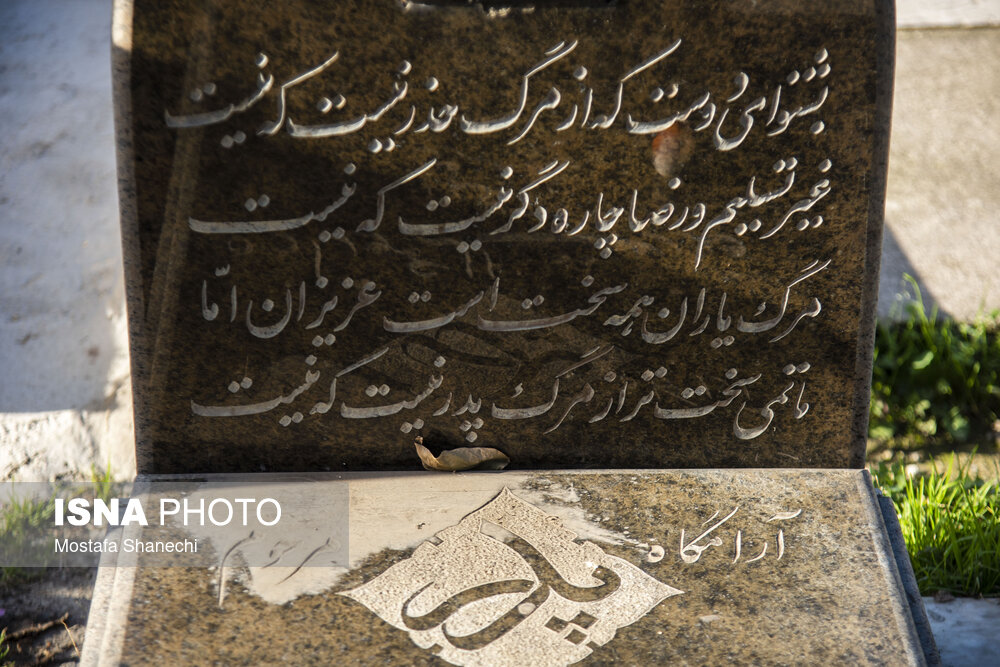 بشنو ای دوست که از مرگ حذر نیست که نیست
غیر تسلیم و رضا چاره دگر نیست که نیست
مرگ یاران همه سخت است عزیزان امّا
ماتمی سخت تر از مرگ پدر نیست که نیست
آرامگاه
پدر
مرحوم
ISNA PHOTO
Mostafa Shanechi